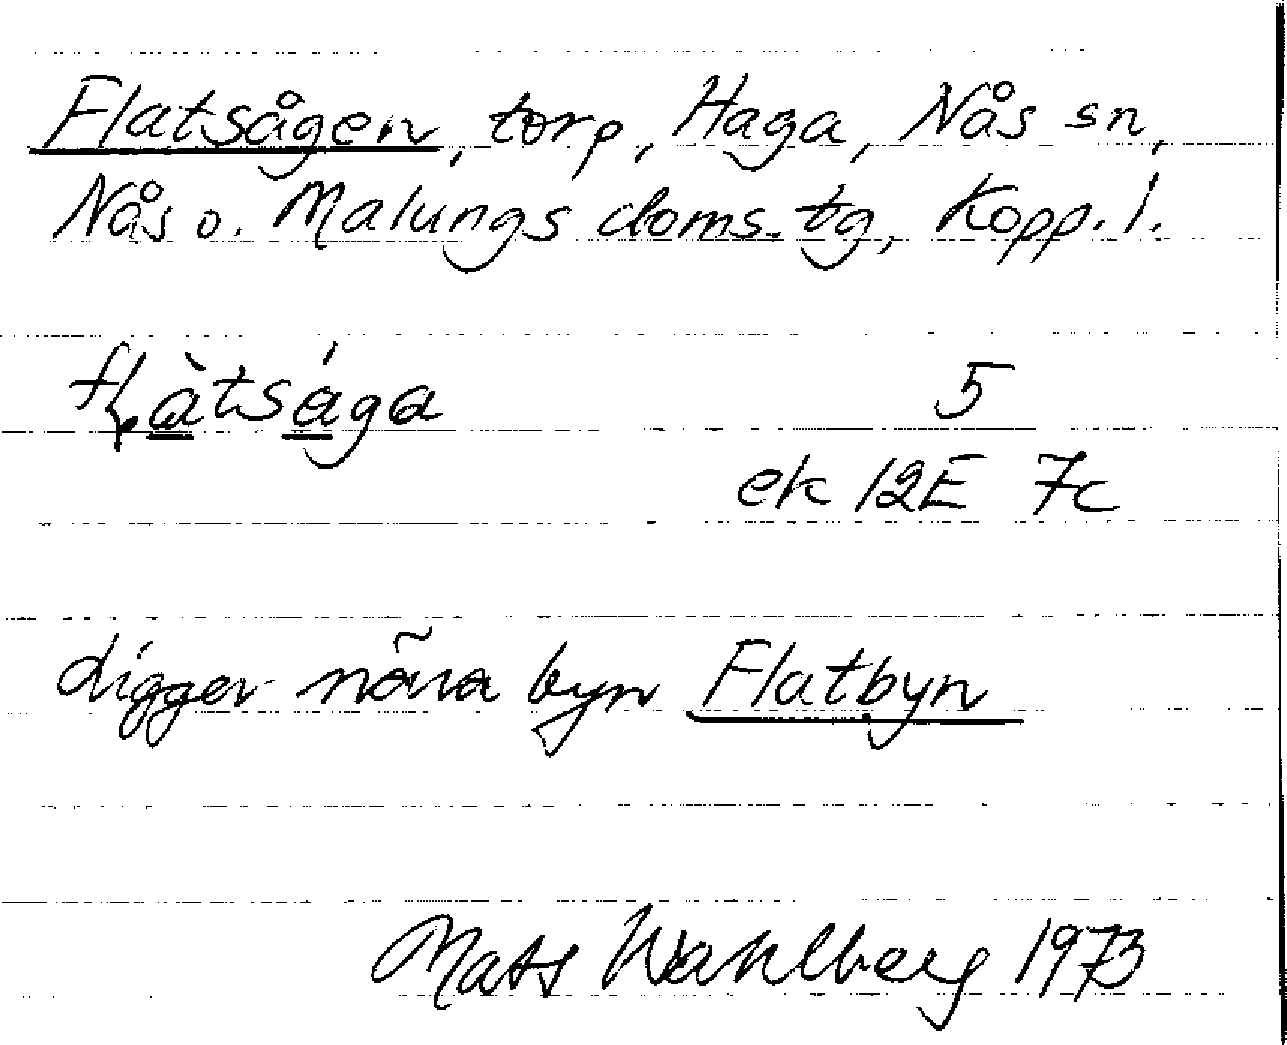 Flatsågen, torp, Haga, Nås sn,
Nås o. Malungs doms. tg, Kopp. l.
fḷàtsága 5
ek 12E 7c
Ligger nära byn Flatbyn
Mats Wahlberg 1973